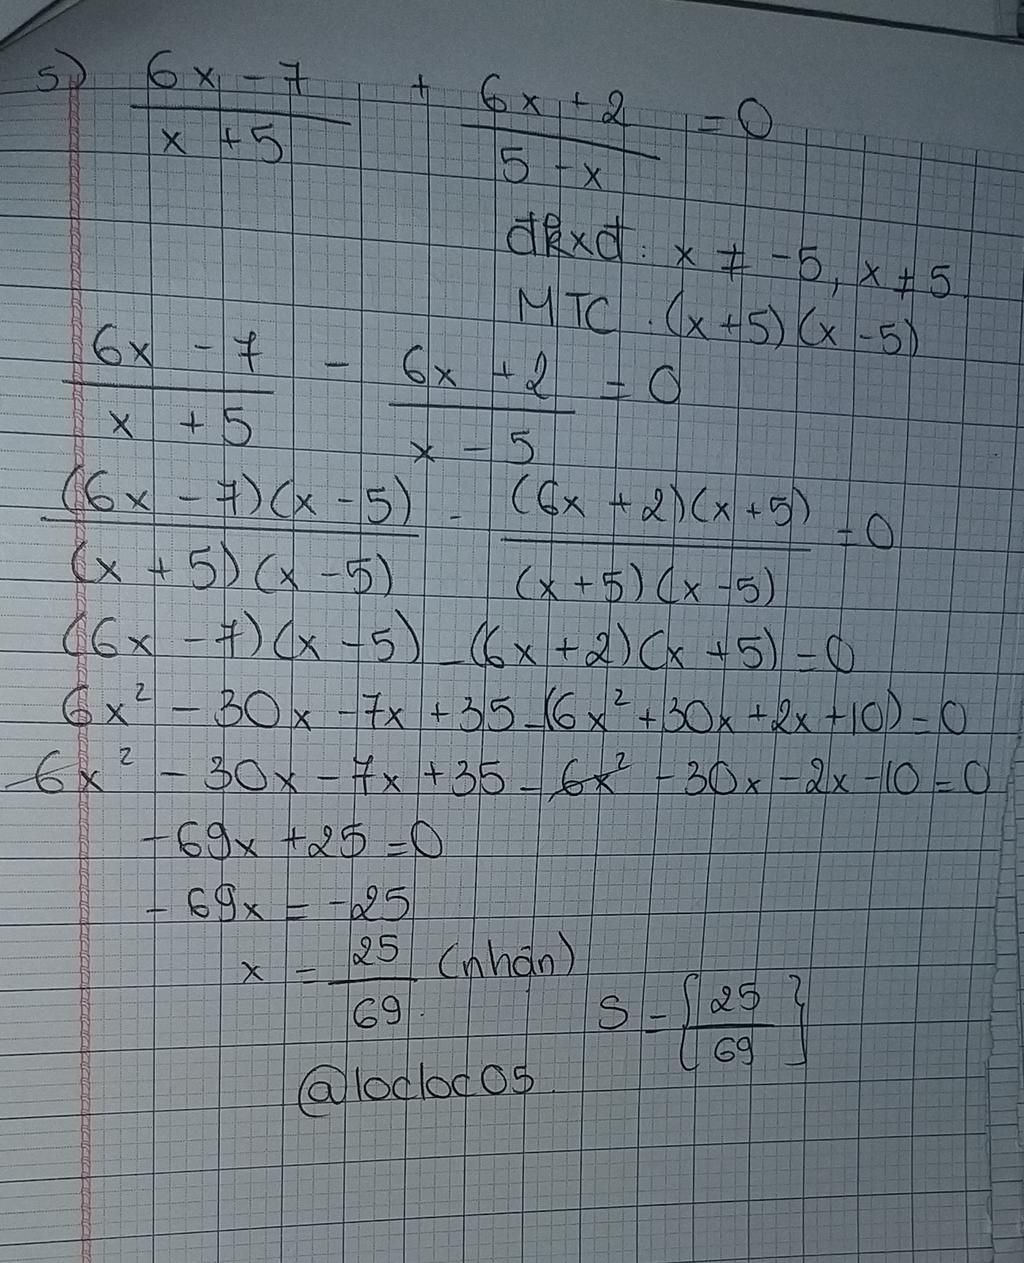 5) (6x - 7)/(x + 5) + (6x + 2)/(5 - x) = 0
đkxđ: x ≠ -5, x ≠ 5
MTC: (x + 5)(x - 5)
(6x - 7)/(x + 5) - (6x + 2)/(x - 5) = 0
((6x - 7)(x - 5))/((x + 5)(x - 5)) - ((6x + 2)(x + 5))/((x + 5)(x - 5)) = 0
(6x - 7)(x - 5) - (6x + 2)(x + 5) = 0
6x² - 30x - 7x + 35 - (6x² + 30x + 2x + 10) = 0
6x² - 30x - 7x + 35 - 6x² - 30x - 2x - 10 = 0
-69x + 25 = 0
-69x = -25
x = 25/69 (nhận)
S = {25/69}
@locloc05